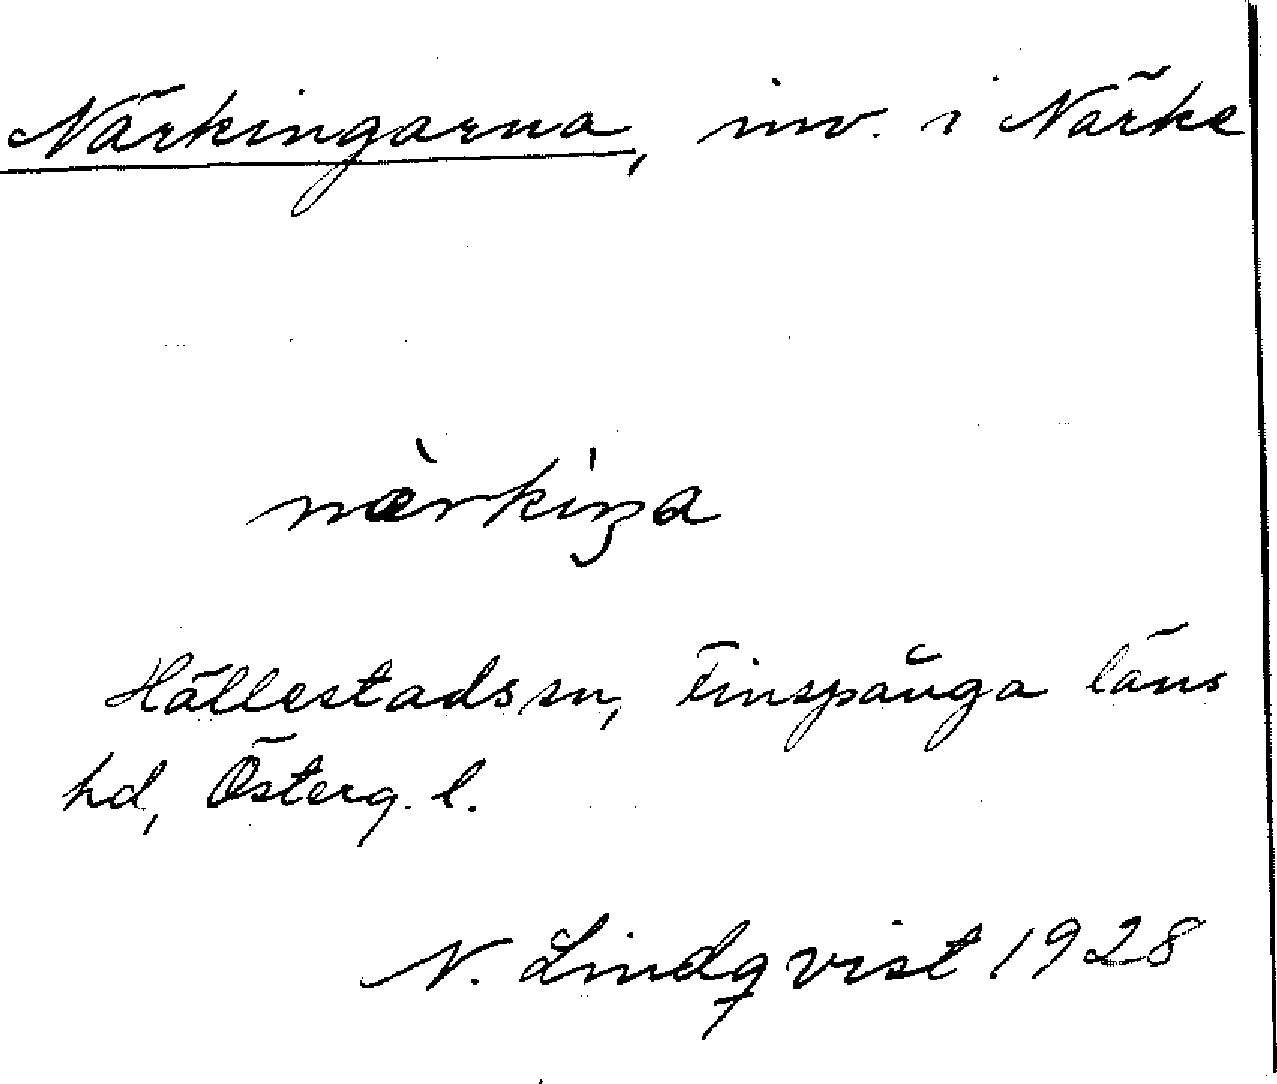 Närkingarna, inv. i Närke
nærkiŋa
Hällestads sn, Finspånga läns
hd, Österg. l.
N. Lindqvist 1928